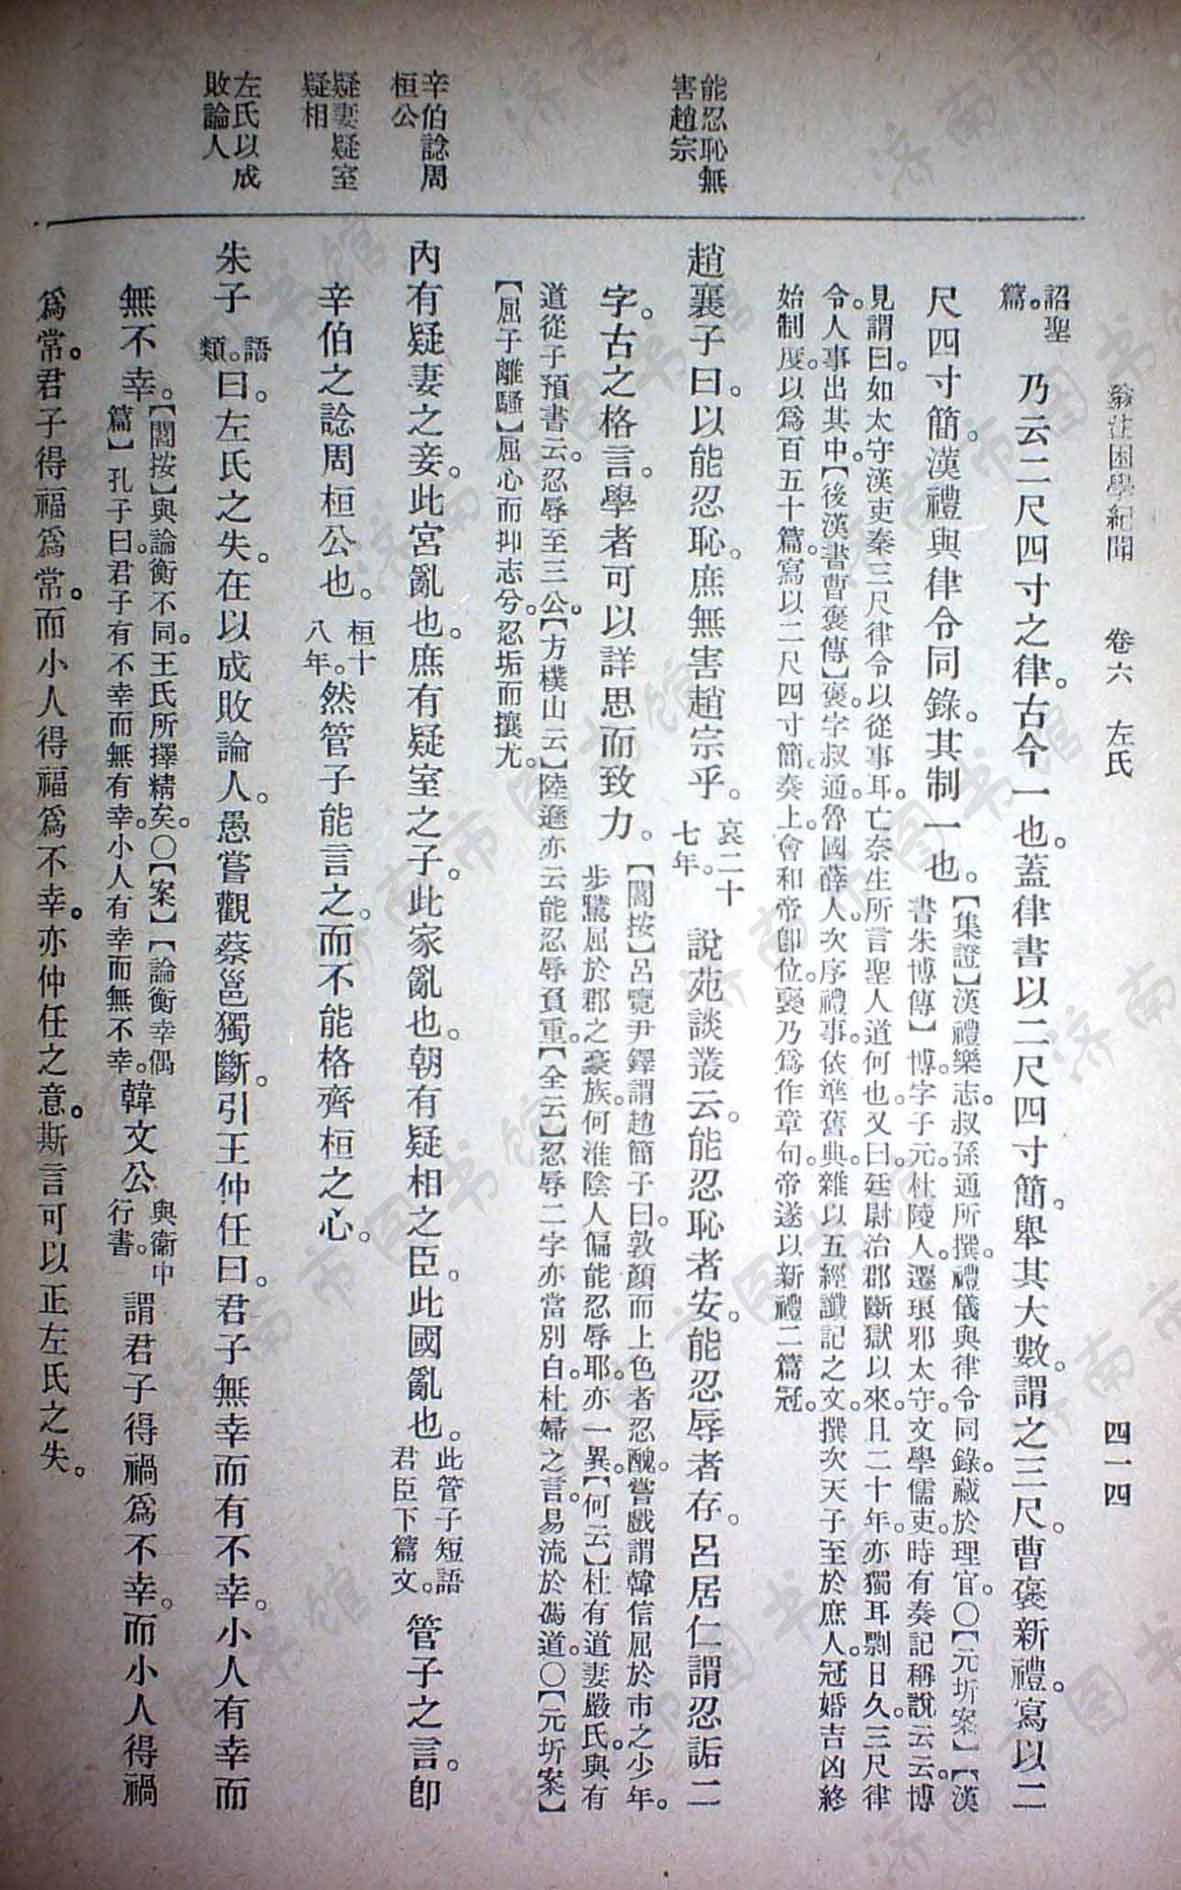 翁注困學紀聞　卷六　左氏　四一四
詔聖
篇。
乃云二尺四寸之律。古今一也。蓋律書以二尺四寸簡。舉其大數。謂之三尺。曹褒新禮。寫以二
尺四寸簡。漢禮與律令同錄。其制一也。
【集證】漢禮樂志。叔孫通所撰。禮儀與律令同錄。藏於理官。〇【元圻案】【漢
書朱博傳】博。字子元。杜陵人。遷琅邪太守。文學儒吏。時有奏記稱說云云。博
見謂曰。如太守漢吏。奉三尺律令以從事耳。亡奈生所言聖人道何也。又曰。廷尉治郡斷獄以來。且二十年。亦獨耳剽日久。三尺律
令。人事出其中。【後漢書曹褒傳】褒。字叔通。魯國薛人。次序禮事。依準舊典。雜以五經讖記之文。撰次天子至於庶人。冠婚吉凶終
始制度。以爲百五十篇。寫以二尺四寸簡。奏上。會和帝卽位。褒乃爲作章句。帝遂以新禮二篇冠。
能忍恥無
害趙宗
趙襄子曰。以能忍恥。庶無害趙宗乎。
哀二十
七年。
說苑談叢云。能忍恥者安。能忍辱者存。呂居仁謂忍詬二
字。古之格言。學者可以詳思而致力。
【閻按】呂覽尹鐸謂趙簡子曰。敦顏而上色者忍醜。嘗戲謂韓信屈於市之少年。
步騭屈於郡之豪族。何淮陰人偏能忍辱耶。亦一異。【何云】杜有道妻嚴氏。與有
道從子預書云。忍辱至三公。【方樸山云】陸遜亦云能忍辱負重。【全云】忍辱二字亦當別白。杜婦之言。易流於馮道。〇【元圻案】
【屈子離騷】屈心而抑志兮。忍垢而攘尤。
辛伯諗周
桓公
內有疑妻之妾。此宮亂也。庶有疑室之子。此家亂也。朝有疑相之臣。此國亂也。
此管子短語
君臣下篇文。
管子之言。卽
疑妻疑室
疑相
辛伯之諗周桓公也。
桓十
八年。
然管子能言之。而不能格齊桓之心。
左氏以成
敗論人
朱子
語
類。
曰。左氏之失。在以成敗論人。愚嘗觀蔡邕獨斷。引王仲任曰。君子無幸而有不幸。小人有幸而
無不幸。
【閻按】與論衡不同。王氏所擇精矣。〇【案】【論衡幸偶
篇】孔子曰。君子有不幸而無有幸。小人有幸而無不幸。
韓文公
與衞中
行書。
謂君子得禍爲不幸。而小人得禍
爲常。君子得福爲常。而小人得福爲不幸。亦仲任之意。斯言可以正左氏之失。